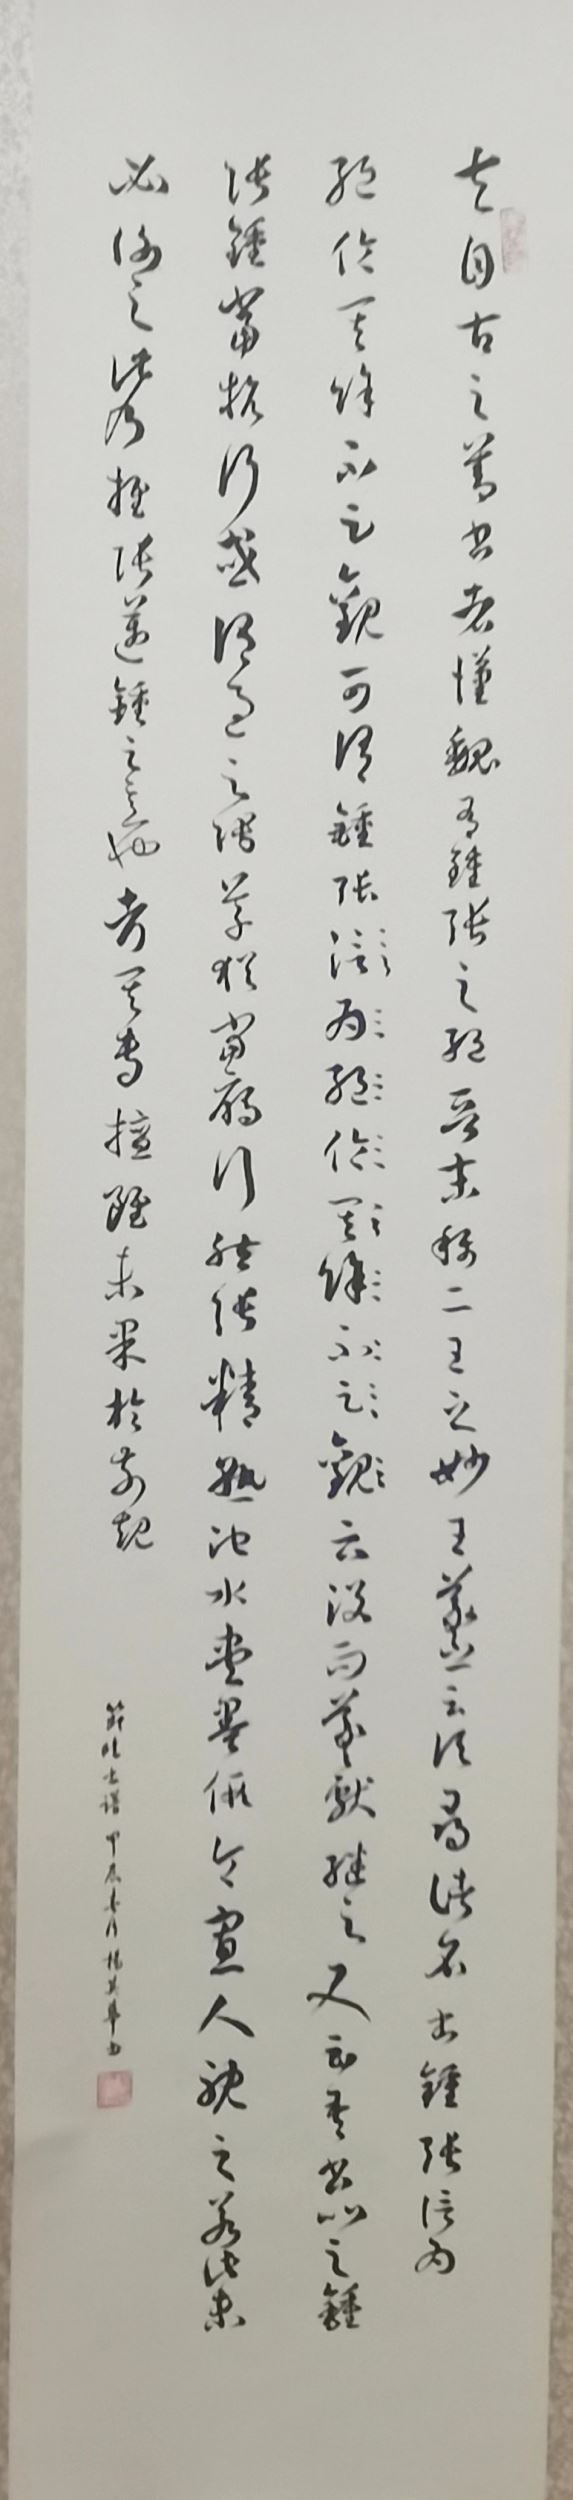 夫自古之善書者漢魏有鍾張之絕晉末稱二王之妙王羲之云頃尋諸名書鍾張信為
絕倫其餘不足觀可謂鍾張信〻為〻絕〻倫〻其〻餘〻不〻足〻觀〻云沒而羲獻繼之又云吾書比之鍾
張鍾當抗行或謂過之張草猶當雁行然張精熟池水盡墨假令寡人耽之若此未
必謝之此乃推張邁鍾之意也考其專擅雖未果於前規
節臨書譜甲辰七月楊